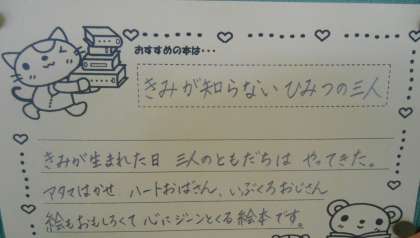 おすすめの本は・・・
きみが知らないひみつの三人
きみが生まれた日 三人のともだちは やってきた。
アタマはかせ ハートおばさん、いぶくろおじさん
絵もおもしろくて 心にジーンとくる絵本です。